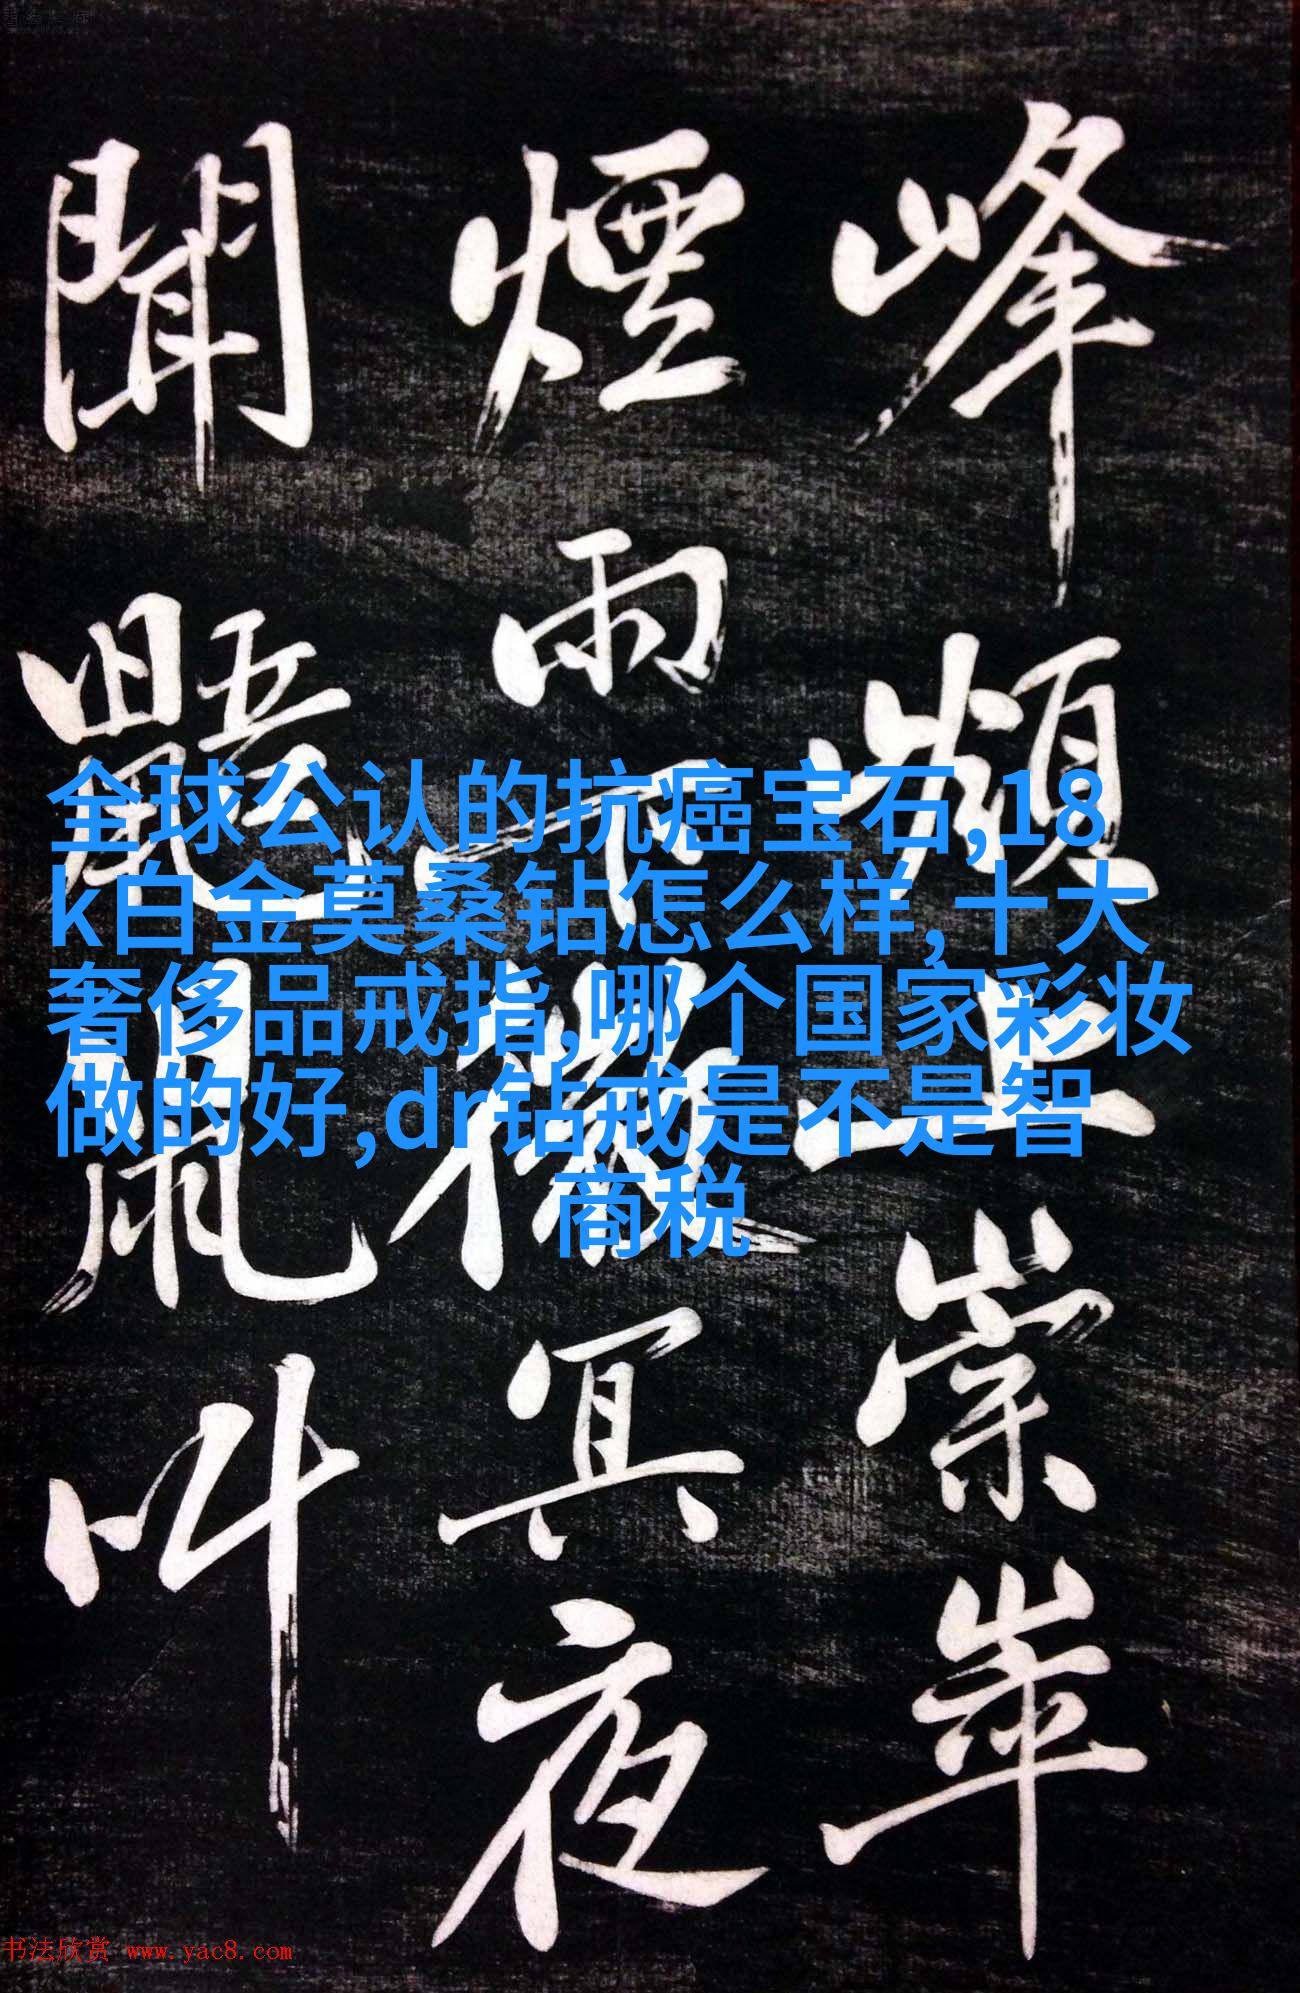 峰頻上崇崒
煙雨下微冥夜
聞鼯鼠叫
全球公认的抗癌宝石,18
k白金莫桑钻怎么样,十大
奢侈品戒指,哪个国家彩妆
做的好,dr钻戒是不是智
商税
书法欣赏 www.yac8.com